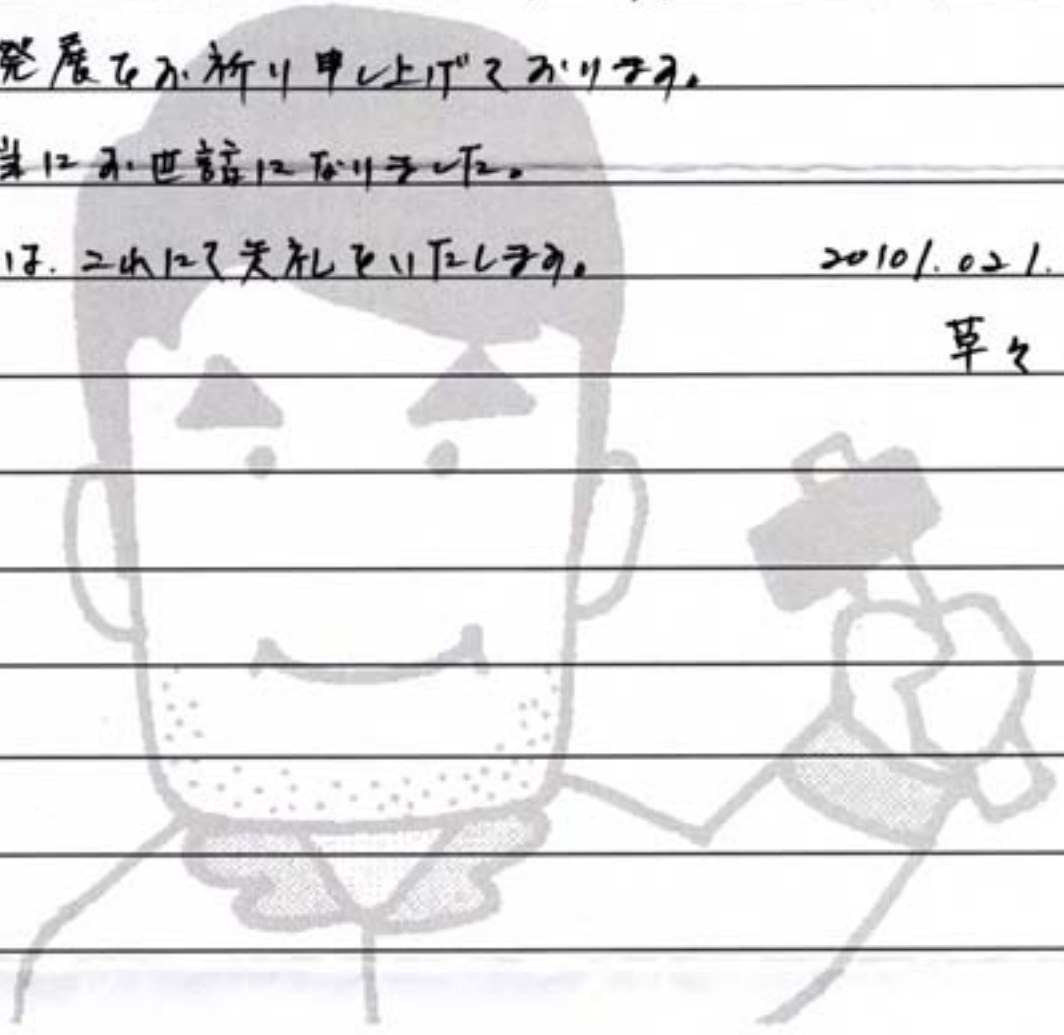 発展をお祈り申し上げております。
当にお世話になりました。
は、これにて失礼をいたします。 2010/.02/.
草々